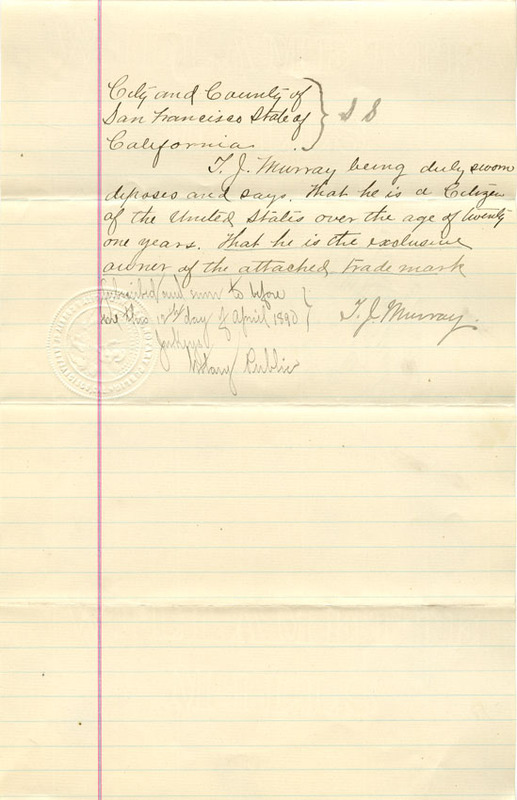 City and County of
San Francisco State of } SS
California.
T. J. Murray being duly sworn
deposes and says. That he is a Citizen
of the United States over the age of twenty
one years. That he is the exclusive
owner of the attached trade mark
Subscribed and sworn to before
me this 12th day of April 1890 } T. J. Murray.
Notary Public